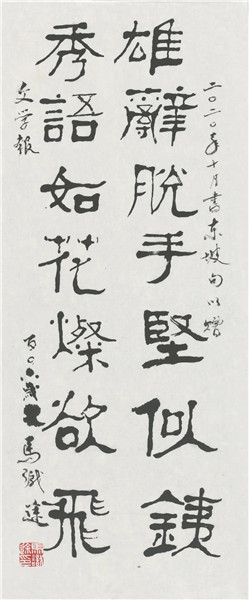 二〇二〇年十月書東坡句以贈
雄辭脫手堅似銕
秀語如花燦欲飛
文学报
百〇六歲叟 馬識途